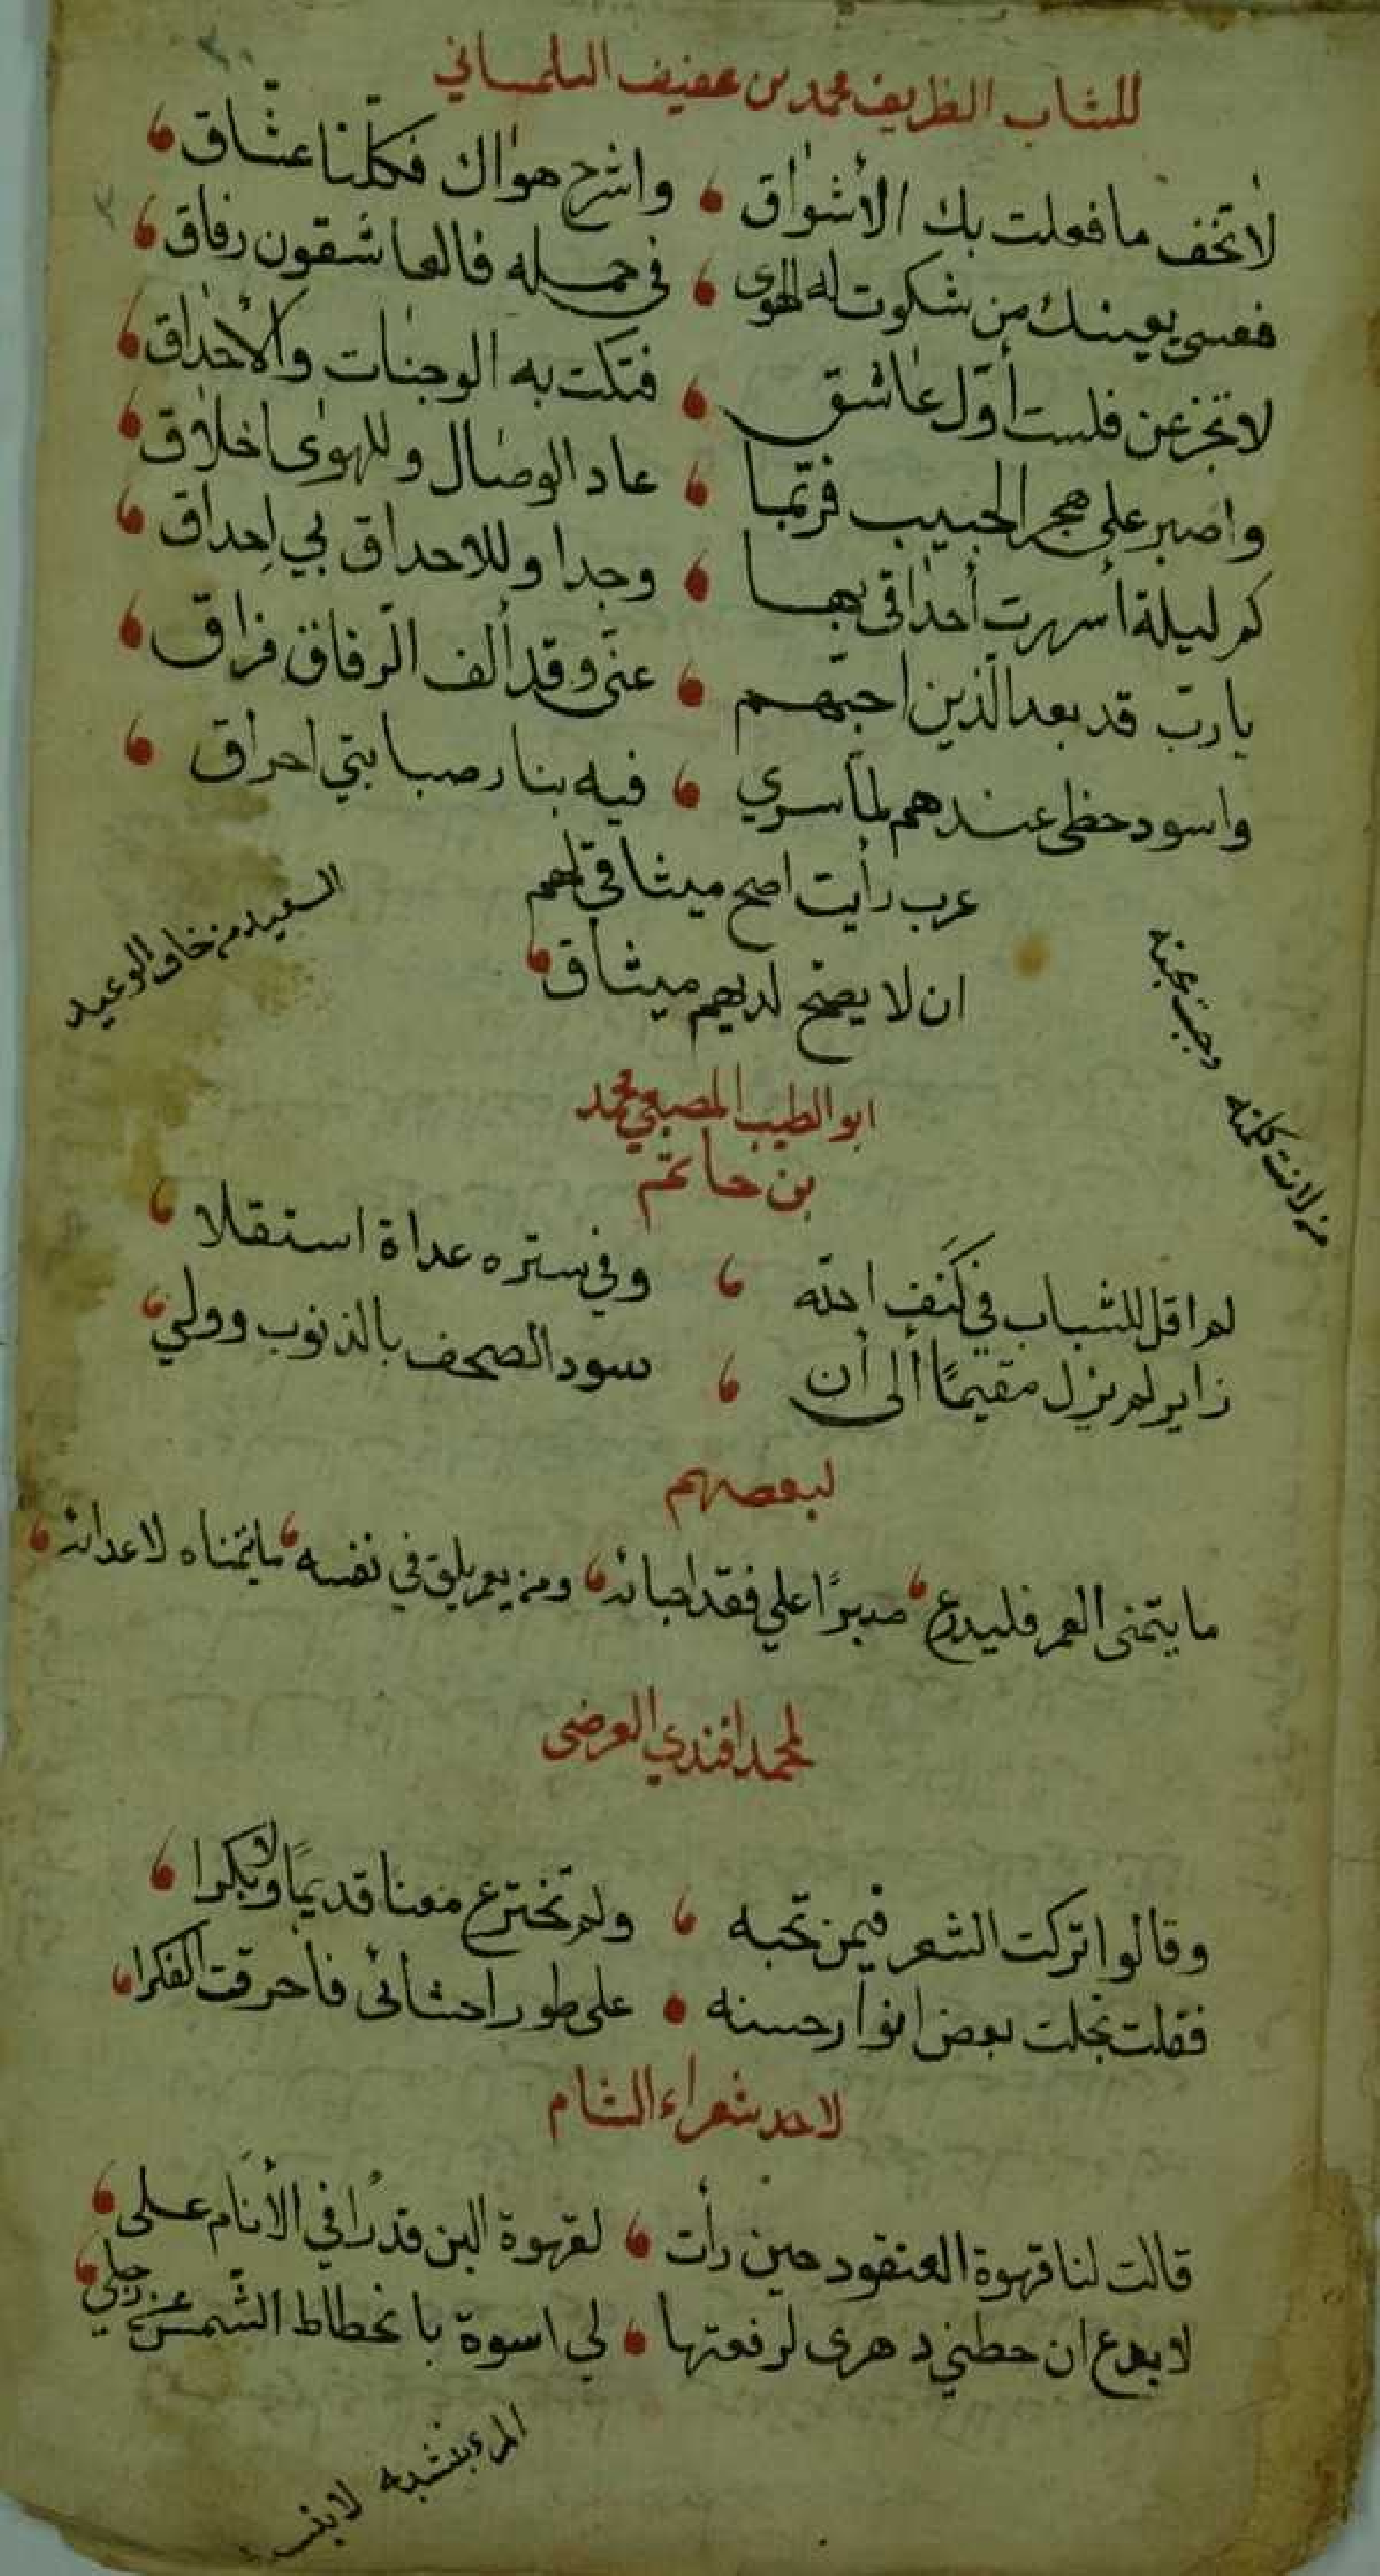 للشاب الظريف محمد بن عفيف التلمساني
لا تخف ما فعلت بك الأشواق واشرح هواك فكلنا عشاق
فعسى يعينك من شكوت له الهوى في حمله فالعاشقون رفاق
لا تجزعن فلست أول عاشق فتكت به الوجنات والأحداق
واصبر على هجر الحبيب فربما عاد الوصال وللهوى اخلاق
كم ليلة أسهرت أحداقي بها وجدا وللاحداق بي إحداق
يا رب قد بعد الذين احبهم عني وقد ألف الرفاق فراق
واسود حظي عندهم لما سرى فيه بنار صبابتي احراق
عرب رأيت اصح ميثاقي لهم
ان لا يصح لديهم ميثاق
السعيد من خاف الوعيد
من لانت كلمته وجبت محبته
ابو الطيب المصعبي محمد
بن حاتم
لم اقل للشباب في كنف الله وفي ستره غداة استقلا
زاير لم يزل مقيمًا ألى أن سود الصحف بالذنوب وولي
لبعضهم
ما يتمنى العمر فليدرع صبرًا علي فقد احبائه ومن يعمر يلق في نفسه ما يتمناه لاعدائه
لمحمد افندي العرضى
وقالوا اتركت الشعر فيمن تحبه ولم تخترع معنا قديمًا ولا بكرا
فقلت تجلت بعض انوار حسنه على طور احشائى فأحرقت الفكرا
لاحد شعراء الشام
قالت لنا قهوة العنقود حين رأت لقهوة البن قدرًا في الأنام على
لا بدع ان حطني دهرى لرفعتها لي اسوة بانحطاط الشمس عن زحلي
المرء بنشبه لا بنسبه